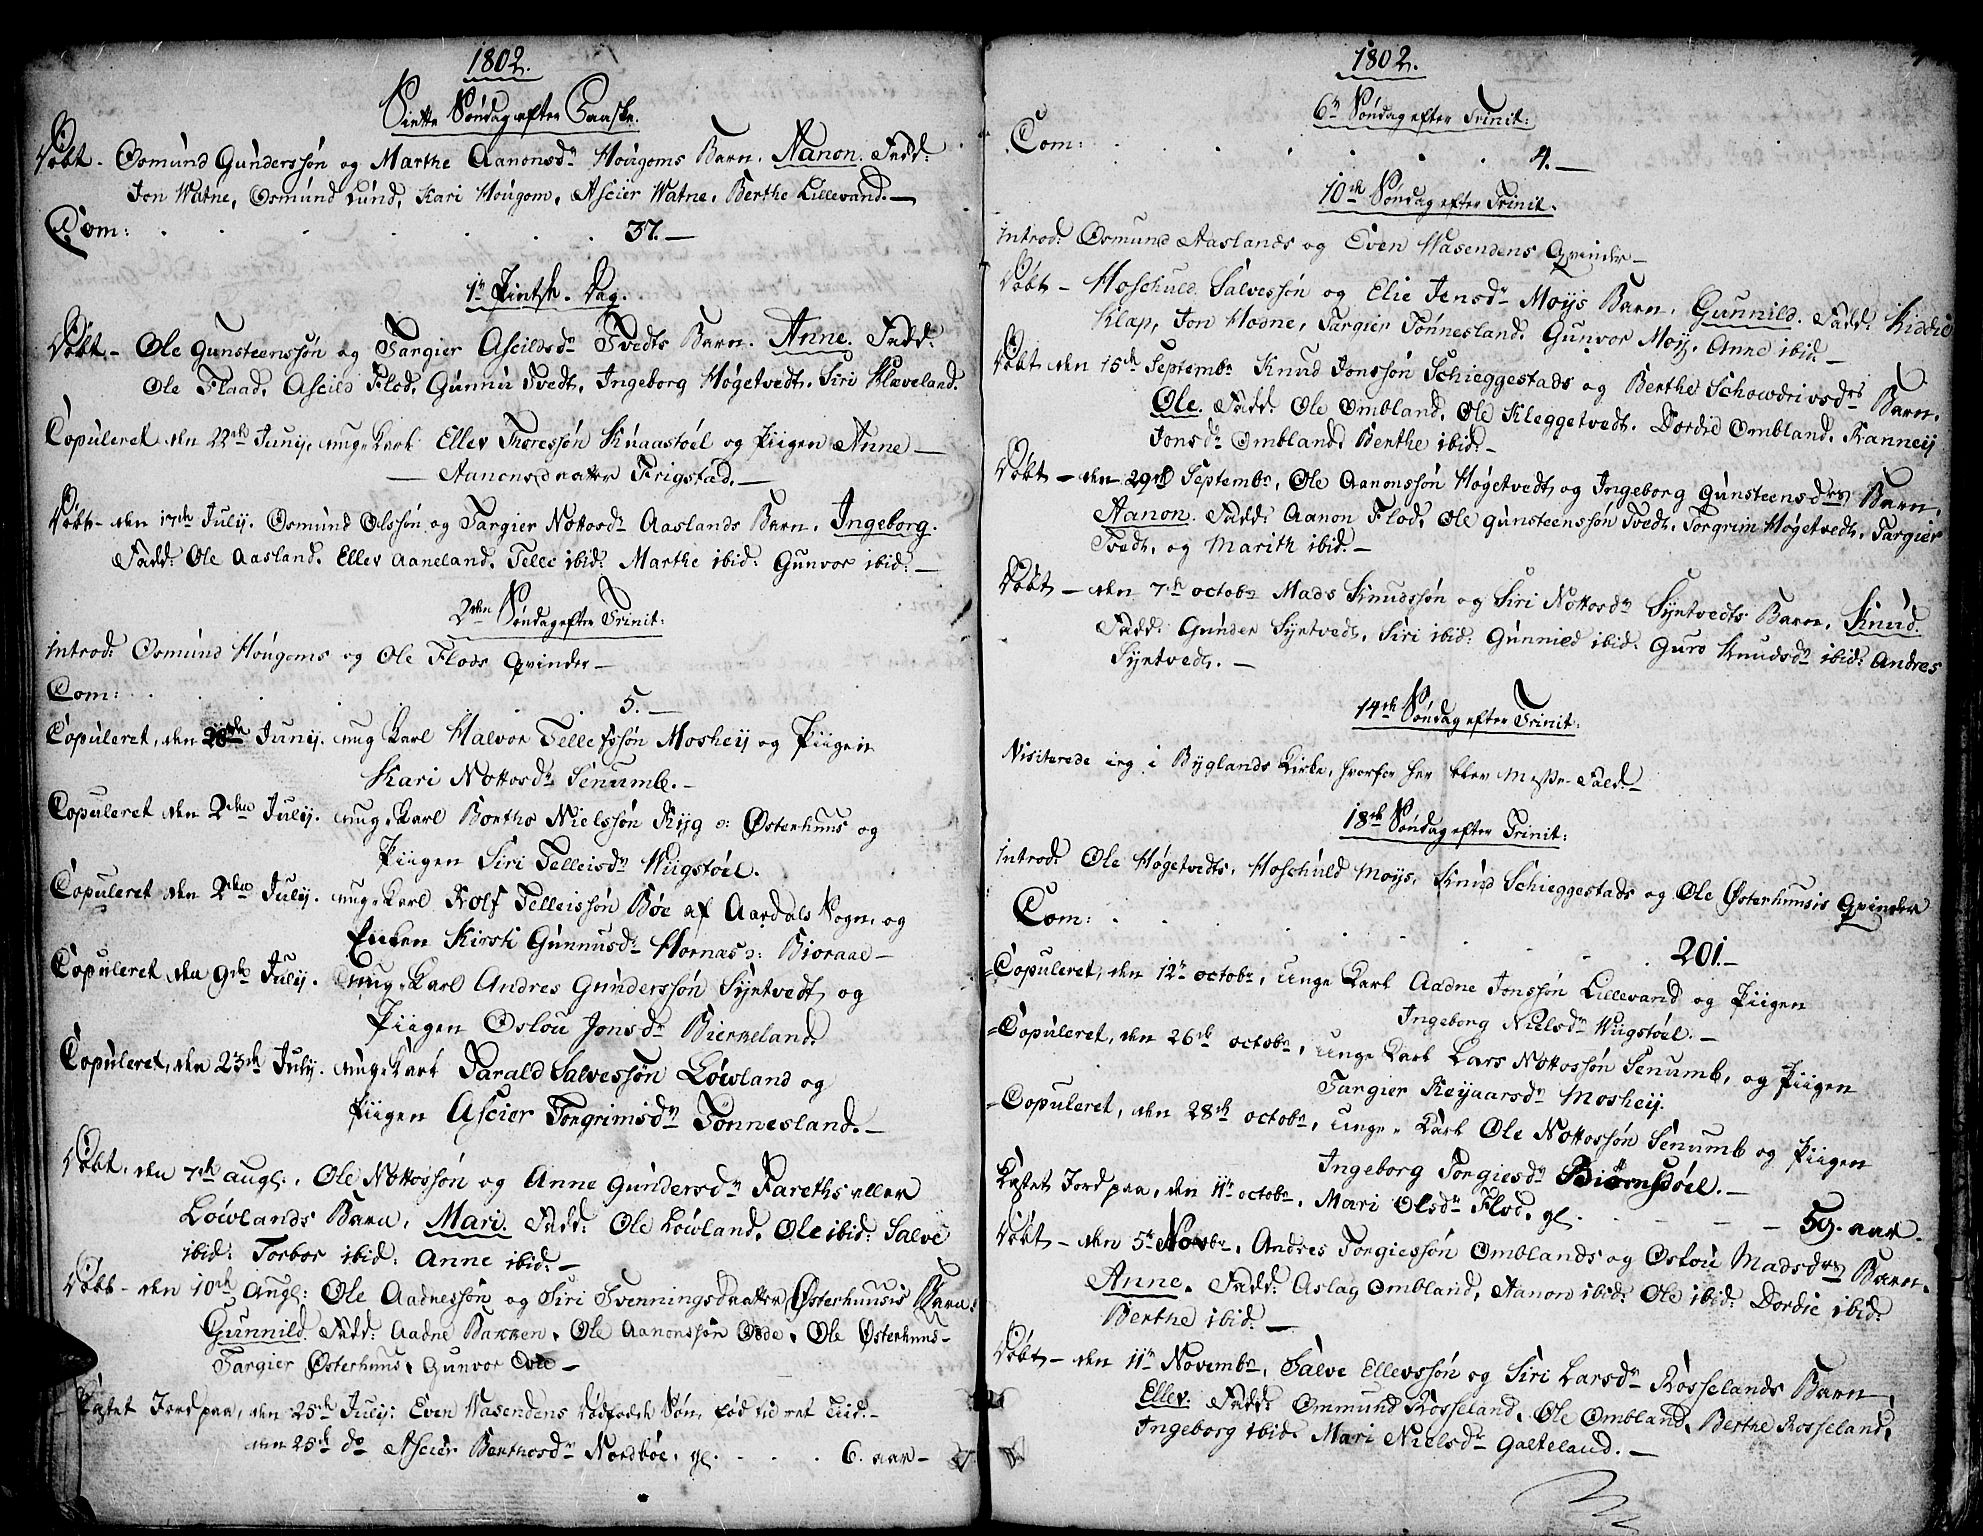 1802.
Siette Søndag efter Paaske.
Døbt - Osmund Gunderssøn og Marthe Aanonsd: Hougoms Barn. Aanon. Fadd:
Jon Watne, Osmund Lund, Kari Hougom, Ascier Watne, Berthe Lillevand.—
Com: . . . . . . . 37.—
1ste Pintsk. Dag.
Døbt - Ole Gunsteenssøn og Targier Ascildsd: Tvedts Barn. Anne. Fadd:
Ole Flaad, Ascild Flod, Gunnu Tvedt, Ingeborg Høgetvedt, Siri Klæveland.
Copuleret den 22de Junij, unge Karl Ellev Thoressøn Knaastøel og Piigen Anne —
— Aanonsdaatter Frigstad.—
Døbt - den 17de Julij. Osmund Olssøn og Targier Nottosd: Aaslands Barn, Ingeborg.
Fadd: Ole Aasland, Ellev Aaneland, Tellef ibid: Marthe ibid: Gunvor ibid: —
2den Søndag efter Trinit:
Introd: Osmund Hougoms og Ole Flods Qvinder—
Com: . . . . 5.—
Copuleret, den 28de Junij. ung Karl Halvor Tellefssøn Mosheij og Piigen
Kari Nottosd: Senumb.—
Copuleret den 2den Julij. unge Karl Bertho Nielssøn Ryg o: Østerhuus og
Piigen Siri Telleisd: Wiigstøel.
Copuleret den 2den Julij. unge Karl Rolf Telleissøn Bøe af Aardals Sogn, og
Enken Kirsti Gunnusd: Hornæs o: Bioraae—
Copuleret, den 9de Julij. unge Karl Andres Gunderssøn Syrtvedt og
Piigen Oslou Jonsd: Bierkeland.
Copuleret, den 23de Julij. unge Karl Tarald Salvessøn Løwland og
Piigen Ascier Torgrimsd: Tønnesland.—
Døbt, den 7de Augl. Ole Nottossøn og Anne Gundersd: Fareths eller
Løwlands Barn, Mari. Fadd: Ole Løwland, Ole ibid: Salve
ibid: Torbor ibid: Anne ibid:—
Døbt - den 10de Augl: Ole Aadnessøn og Siri Svenningsdaatter Østerhuusis Barn:
Gunnild. Fadd: Aadne Bakken, Ole Aanonssøn Ose, Ole Østerhuus-
Targier Østerhuus, Gunvor Ose—
Kastet Jord paa, den 25de Julij: Even Wasendens dødfødde Søn, fød til ret Tiid.—
den 25de do Ascier Berthosd: Nordbøe, gl. . . . 6. aar—
1802.
6te Søndag efter Trinit:
Com: . . . . . . . 4.—
10de Søndag efter Trinit.
Introd: Osmund Aaslands og Even Wasendens Qvinder—
Døbt - Hoschuld Salvessøn og Elie Jensd: Moijs Barn, Gunnild. Fadd: Kiddie
Klap, Jon Hodne, Targier Tønnesland, Gunvor Moij, Anne ibid.—
Døbt den 15de Septembr Knud Jonssøn Schieggestads og Berthe Schowdrivsdrs Barn,
Ole. Fadd: Ole Ombland, Ole Kleggetvedt, Dordie Ombland, Ranneij
Jonsd: Ombland, Berthe ibid.—
Døbt - den 29de Septembr, Ole Aanonssøn Høgetvedt og Ingeborg Gunsteensdrs Barn,
Aanon. Fadd: Aanon Flod, Ole Gunsteenssøn Tvedt, Torgrim Høgetvedt, Targier
Tvedt, og Marith ibid.—
Døbt - den 7de octobr Mads Knudssøn og Siri Nottosd: Syrtvedts Barn, Knud.
Fadd: Gunder Syrtvedt, Siri ibid: Gunnild ibid. Guro Knudsd: ibid: Andres
Syrtvedt.—
14de Søndag efter Trinit:
Visiterede ieg i Byglands Kirke, hvorfor her blev Messe-Fald—
18de Søndag efter Trinit:
Introd: Ole Høgetvedts, Hoschuld Moijs, Knud Schieggestads og Ole Østerhuusis Qvinder
Com: . . . . . . . . 201.—
Copuleret, den 12te octobr, unge Karl Aadne Jonssøn Lillevand og Piigen
Ingeborg Nielsd: Wiigstøel.—
Copuleret, den 26de octobr, unge Karl Lars Nottossøn Senumb, og Piigen
Targier Reijaarsd: Mosheij.
Copuleret, den 28de octobr, unge Karl Ole Nottossøn Senumb og Piigen
Ingeborg Torgiesd: Biørnsdøel.—
Kastet Jord paa, den 11te octobr, Mari Olsd: Flod, gl. . - - - 59. aar.
Døbt - den 5te Novbr, Andres Torgiessøn Omblands og Oslou Madsdrs Barn.
Anne. Fadd: Aslag Ombland, Aanon ibid: Ole ibid: Dordie ibid:
Berthe ibid.—
Døbt - den 11te Novembr, Salve Ellevssøn og Siri Larsd: Rosselands Barn,
Ellev: Fadd: Ommund Rosseland, Ole Ombland, Berthe Rosseland,
Ingeborg ibid. Mari Nielsd: Galteland.—